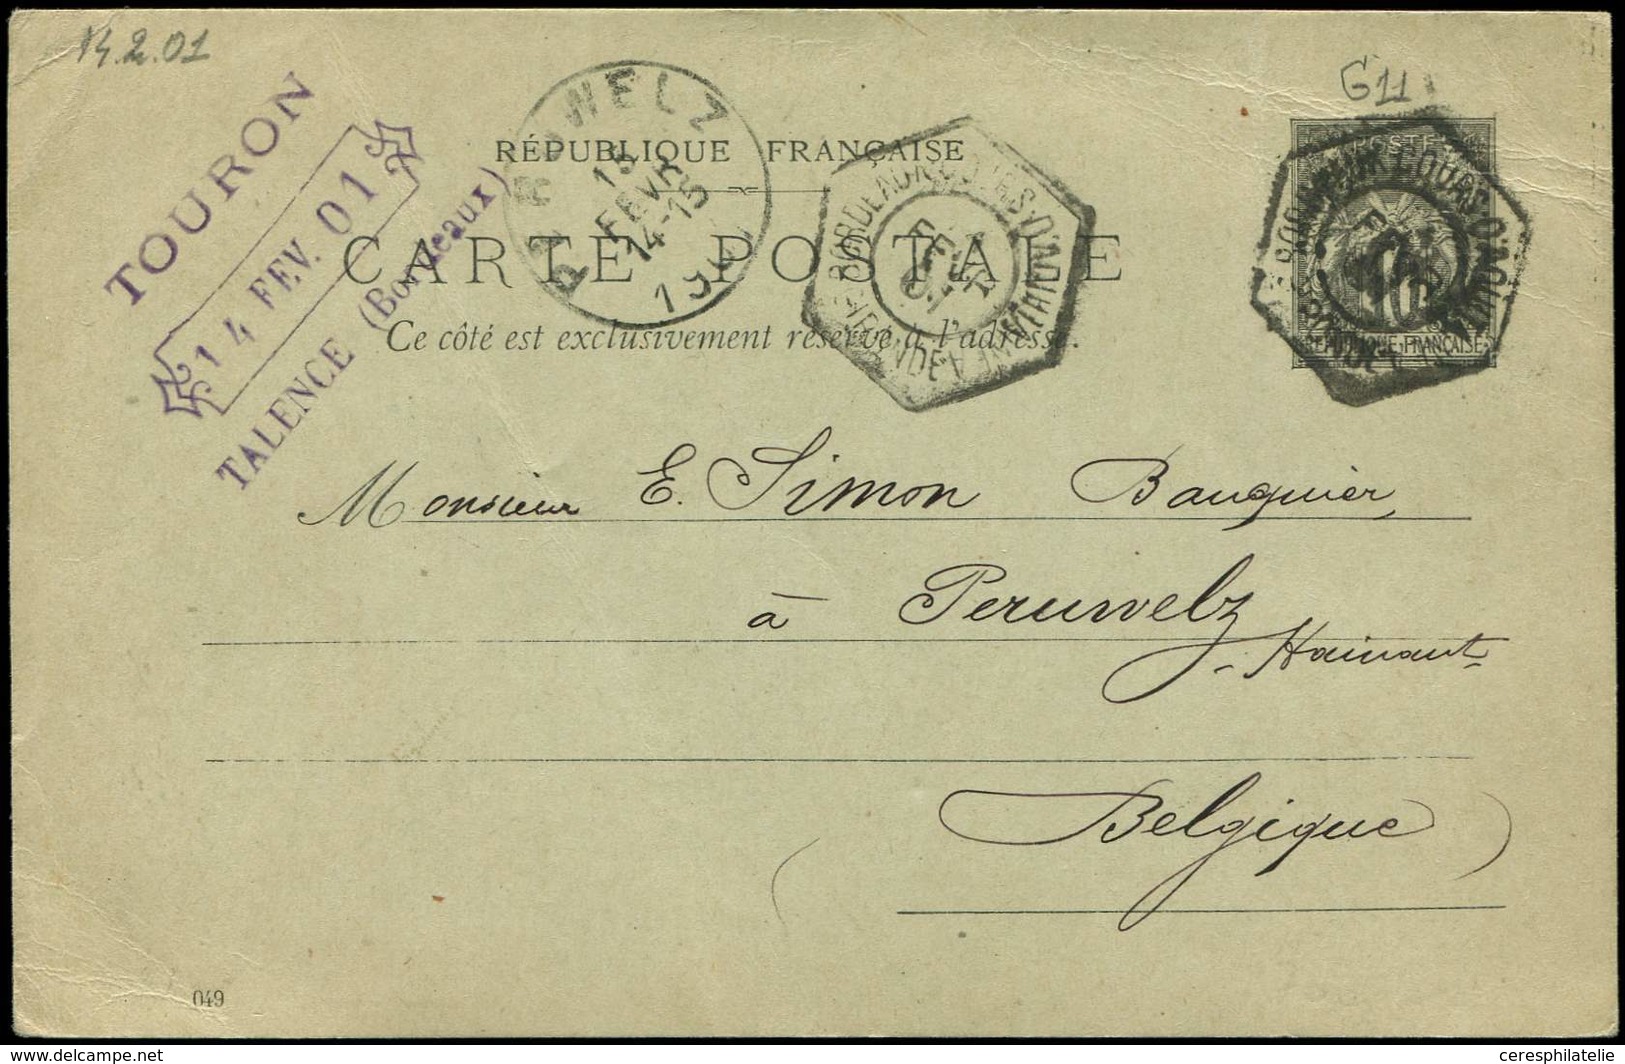 14.2.01
G11
TOURON
14 FEV. 01
TALENCE (Bordeaux)
PERUWELZ
15
FEVR
14-15
RÉPUBLIQUE FRANÇAISE
CARTE POSTALE
Ce côté est exclusivement réservé à l'adresse.
BORDEAUX COURS D'AQUITAINE
GIRONDE
POSTE
10
RÉPUBLIQUE FRANÇAISE
Monsieur E. Simon Banquier,
à Peruwelz
- Hainaut -
(Belgique)
049
ceresphilatelie
www.delcampe.net